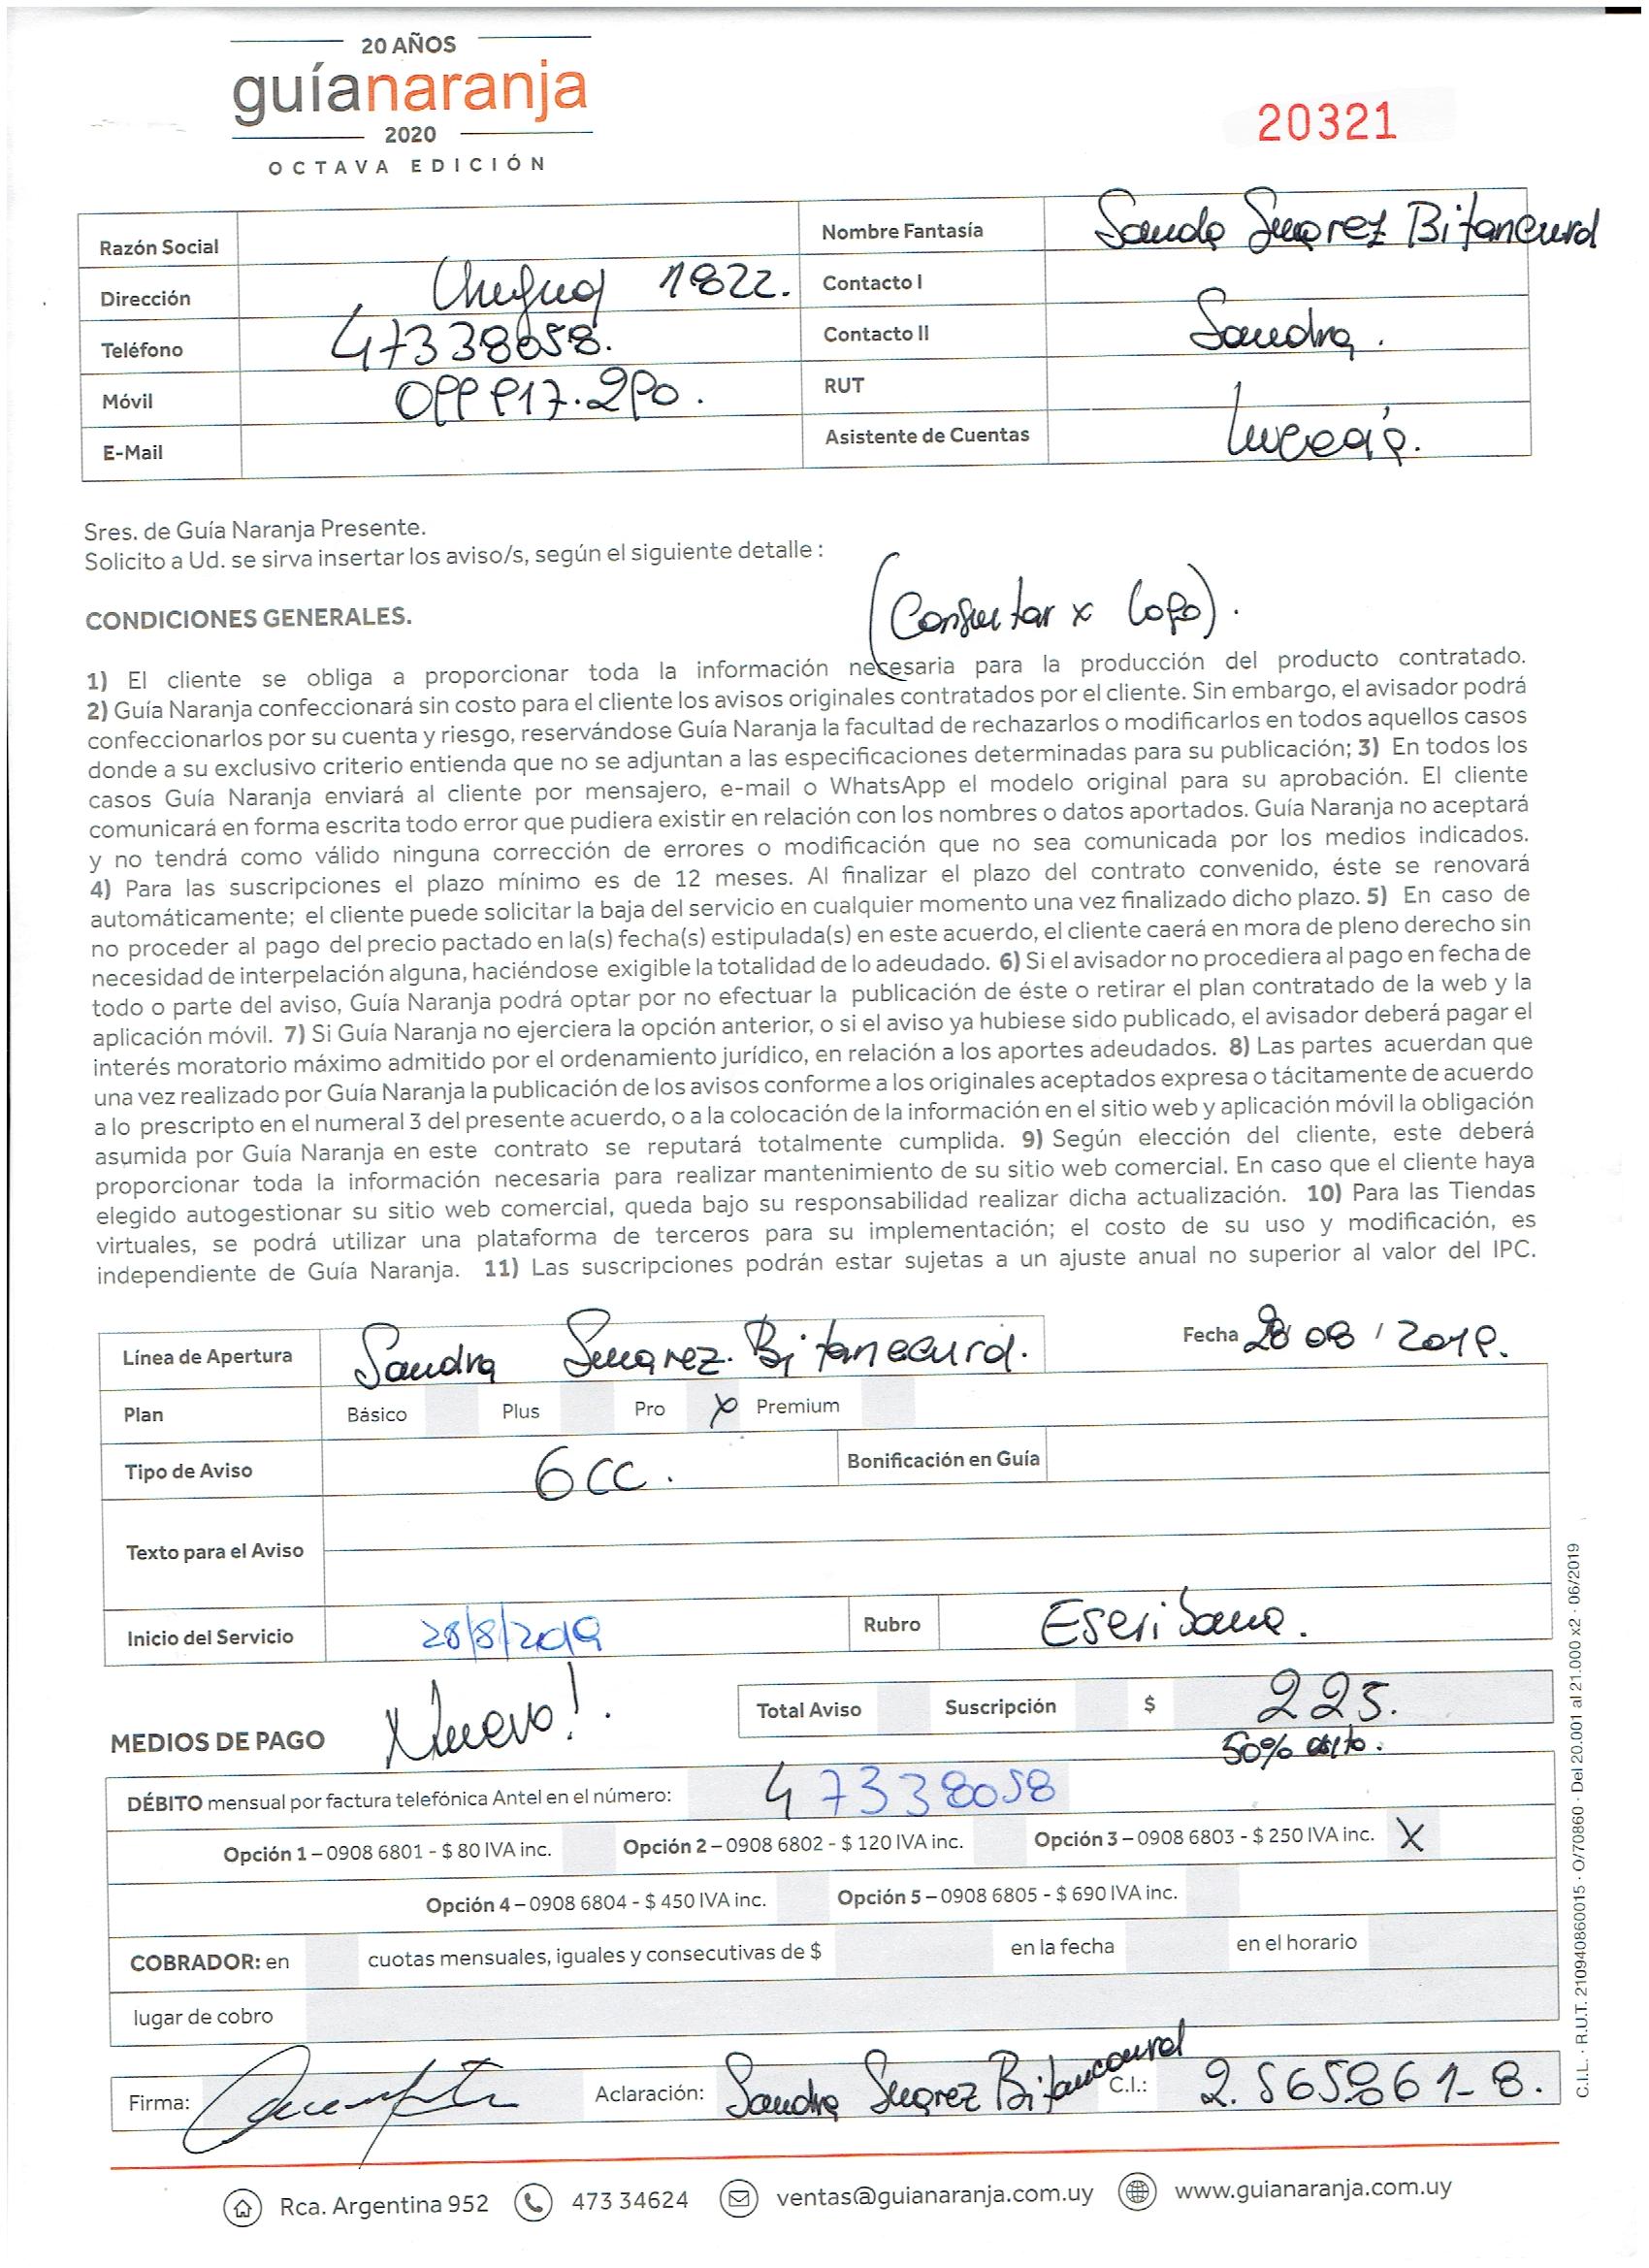 20 AÑOS
guíanaranja
2020
OCTAVA EDICIÓN
20321
Razón Social
Nombre Fantasía Sandra Suarez Bitancurd
Dirección 1822.
Contacto I
Teléfono 47338058.
Contacto II Sandra.
Móvil 099 917.290.
RUT
E-Mail
Asistente de Cuentas
Sres. de Guía Naranja Presente.
Solicito a Ud. se sirva insertar los aviso/s, según el siguiente detalle :
(Consultar x logo).
CONDICIONES GENERALES.
1) El cliente se obliga a proporcionar toda la información necesaria para la producción del producto contratado.
2) Guía Naranja confeccionará sin costo para el cliente los avisos originales contratados por el cliente. Sin embargo, el avisador podrá
confeccionarlos por su cuenta y riesgo, reservándose Guía Naranja la facultad de rechazarlos o modificarlos en todos aquellos casos
donde a su exclusivo criterio entienda que no se adjuntan a las especificaciones determinadas para su publicación; 3) En todos los
casos Guía Naranja enviará al cliente por mensajero, e-mail o WhatsApp el modelo original para su aprobación. El cliente
comunicará en forma escrita todo error que pudiera existir en relación con los nombres o datos aportados. Guía Naranja no aceptará
y no tendrá como válido ninguna corrección de errores o modificación que no sea comunicada por los medios indicados.
4) Para las suscripciones el plazo mínimo es de 12 meses. Al finalizar el plazo del contrato convenido, éste se renovará
automáticamente; el cliente puede solicitar la baja del servicio en cualquier momento una vez finalizado dicho plazo. 5) En caso de
no proceder al pago del precio pactado en la(s) fecha(s) estipulada(s) en este acuerdo, el cliente caerá en mora de pleno derecho sin
necesidad de interpelación alguna, haciéndose exigible la totalidad de lo adeudado. 6) Si el avisador no procediera al pago en fecha de
todo o parte del aviso, Guía Naranja podrá optar por no efectuar la publicación de éste o retirar el plan contratado de la web y la
aplicación móvil. 7) Si Guía Naranja no ejerciera la opción anterior, o si el aviso ya hubiese sido publicado, el avisador deberá pagar el
interés moratorio máximo admitido por el ordenamiento jurídico, en relación a los aportes adeudados. 8) Las partes acuerdan que
una vez realizado por Guía Naranja la publicación de los avisos conforme a los originales aceptados expresa o tácitamente de acuerdo
a lo prescripto en el numeral 3 del presente acuerdo, o a la colocación de la información en el sitio web y aplicación móvil la obligación
asumida por Guía Naranja en este contrato se reputará totalmente cumplida. 9) Según elección del cliente, este deberá
proporcionar toda la información necesaria para realizar mantenimiento de su sitio web comercial. En caso que el cliente haya
elegido autogestionar su sitio web comercial, queda bajo su responsabilidad realizar dicha actualización. 10) Para las Tiendas
virtuales, se podrá utilizar una plataforma de terceros para su implementación; el costo de su uso y modificación, es
independiente de Guía Naranja. 11) Las suscripciones podrán estar sujetas a un ajuste anual no superior al valor del IPC.
Línea de Apertura Sandra Suarez Bitancurd. Fecha 28 08 / 2019.
Plan Básico Plus Pro X Premium
Tipo de Aviso 6cc. Bonificación en Guía
Texto para el Aviso
Inicio del Servicio 28/8/2019 Rubro Escribana.
Nuevo!.
Total Aviso Suscripción $ 225.
MEDIOS DE PAGO
50% dsito.
DÉBITO mensual por factura telefónica Antel en el número: 47338058
Opción 1 – 0908 6801 - $ 80 IVA inc. Opción 2 – 0908 6802 - $ 120 IVA inc. Opción 3 – 0908 6803 - $ 250 IVA inc. X
Opción 4 – 0908 6804 - $ 450 IVA inc. Opción 5 – 0908 6805 - $ 690 IVA inc.
COBRADOR: en cuotas mensuales, iguales y consecutivas de $ en la fecha en el horario
lugar de cobro
Firma: Aclaración: Sandra Suarez Bitancourd C.I.: 2.565.861-8.
Rca. Argentina 952 473 34624 ventas@guianaranja.com.uy www.guianaranja.com.uy
C.I.L. · R.U.T. 210940860015 · O/70860 · Del 20.001 al 21.000 x2 · 06/2019